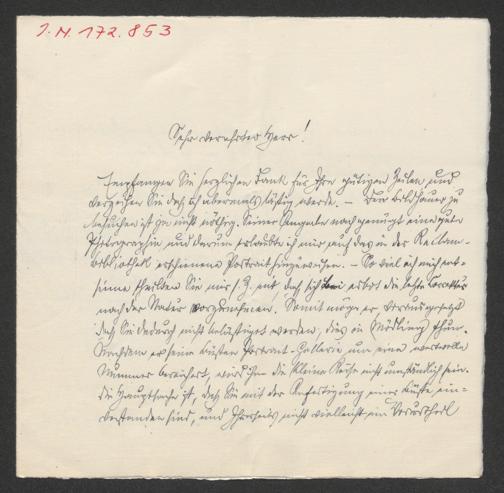 J.N. 172.853
Sehr verehrter Herr!
Empfangen Sie herzlichen Dank für Ihre gütigen Zeilen und
verzeihen Sie daß ich abermals lästig werde. – Den Bildhauer zu
besuchen ist gar nicht nöthig. Seiner Angabe nach genügt eine gute
Photographie und darum erlaubte ich mir auf das in der Reclam-
bibliothek erschienene Portrait hinzuweisen. – So viel ich mich ent-
sinne theilten Sie mir s. Z. mit, daß sich erbot die letzte Correktur
nach der Natur vorzunehmen. Somit möge er vorausgesetzt
daß Sie dadurch nicht belästiget werden, dies in Mödling thun.
Nachdem er seine Büsten Portrait-Gallerie um eine wertvolle
Nummer bereichert, wird ihm die kleine Reise nicht umständlich sein.
Die Hauptsache ist, daß Sie mit der Anfertigung einer Büste ein-
verstanden sind, und Ihrerseits nicht vielleicht ein Vorurtheil